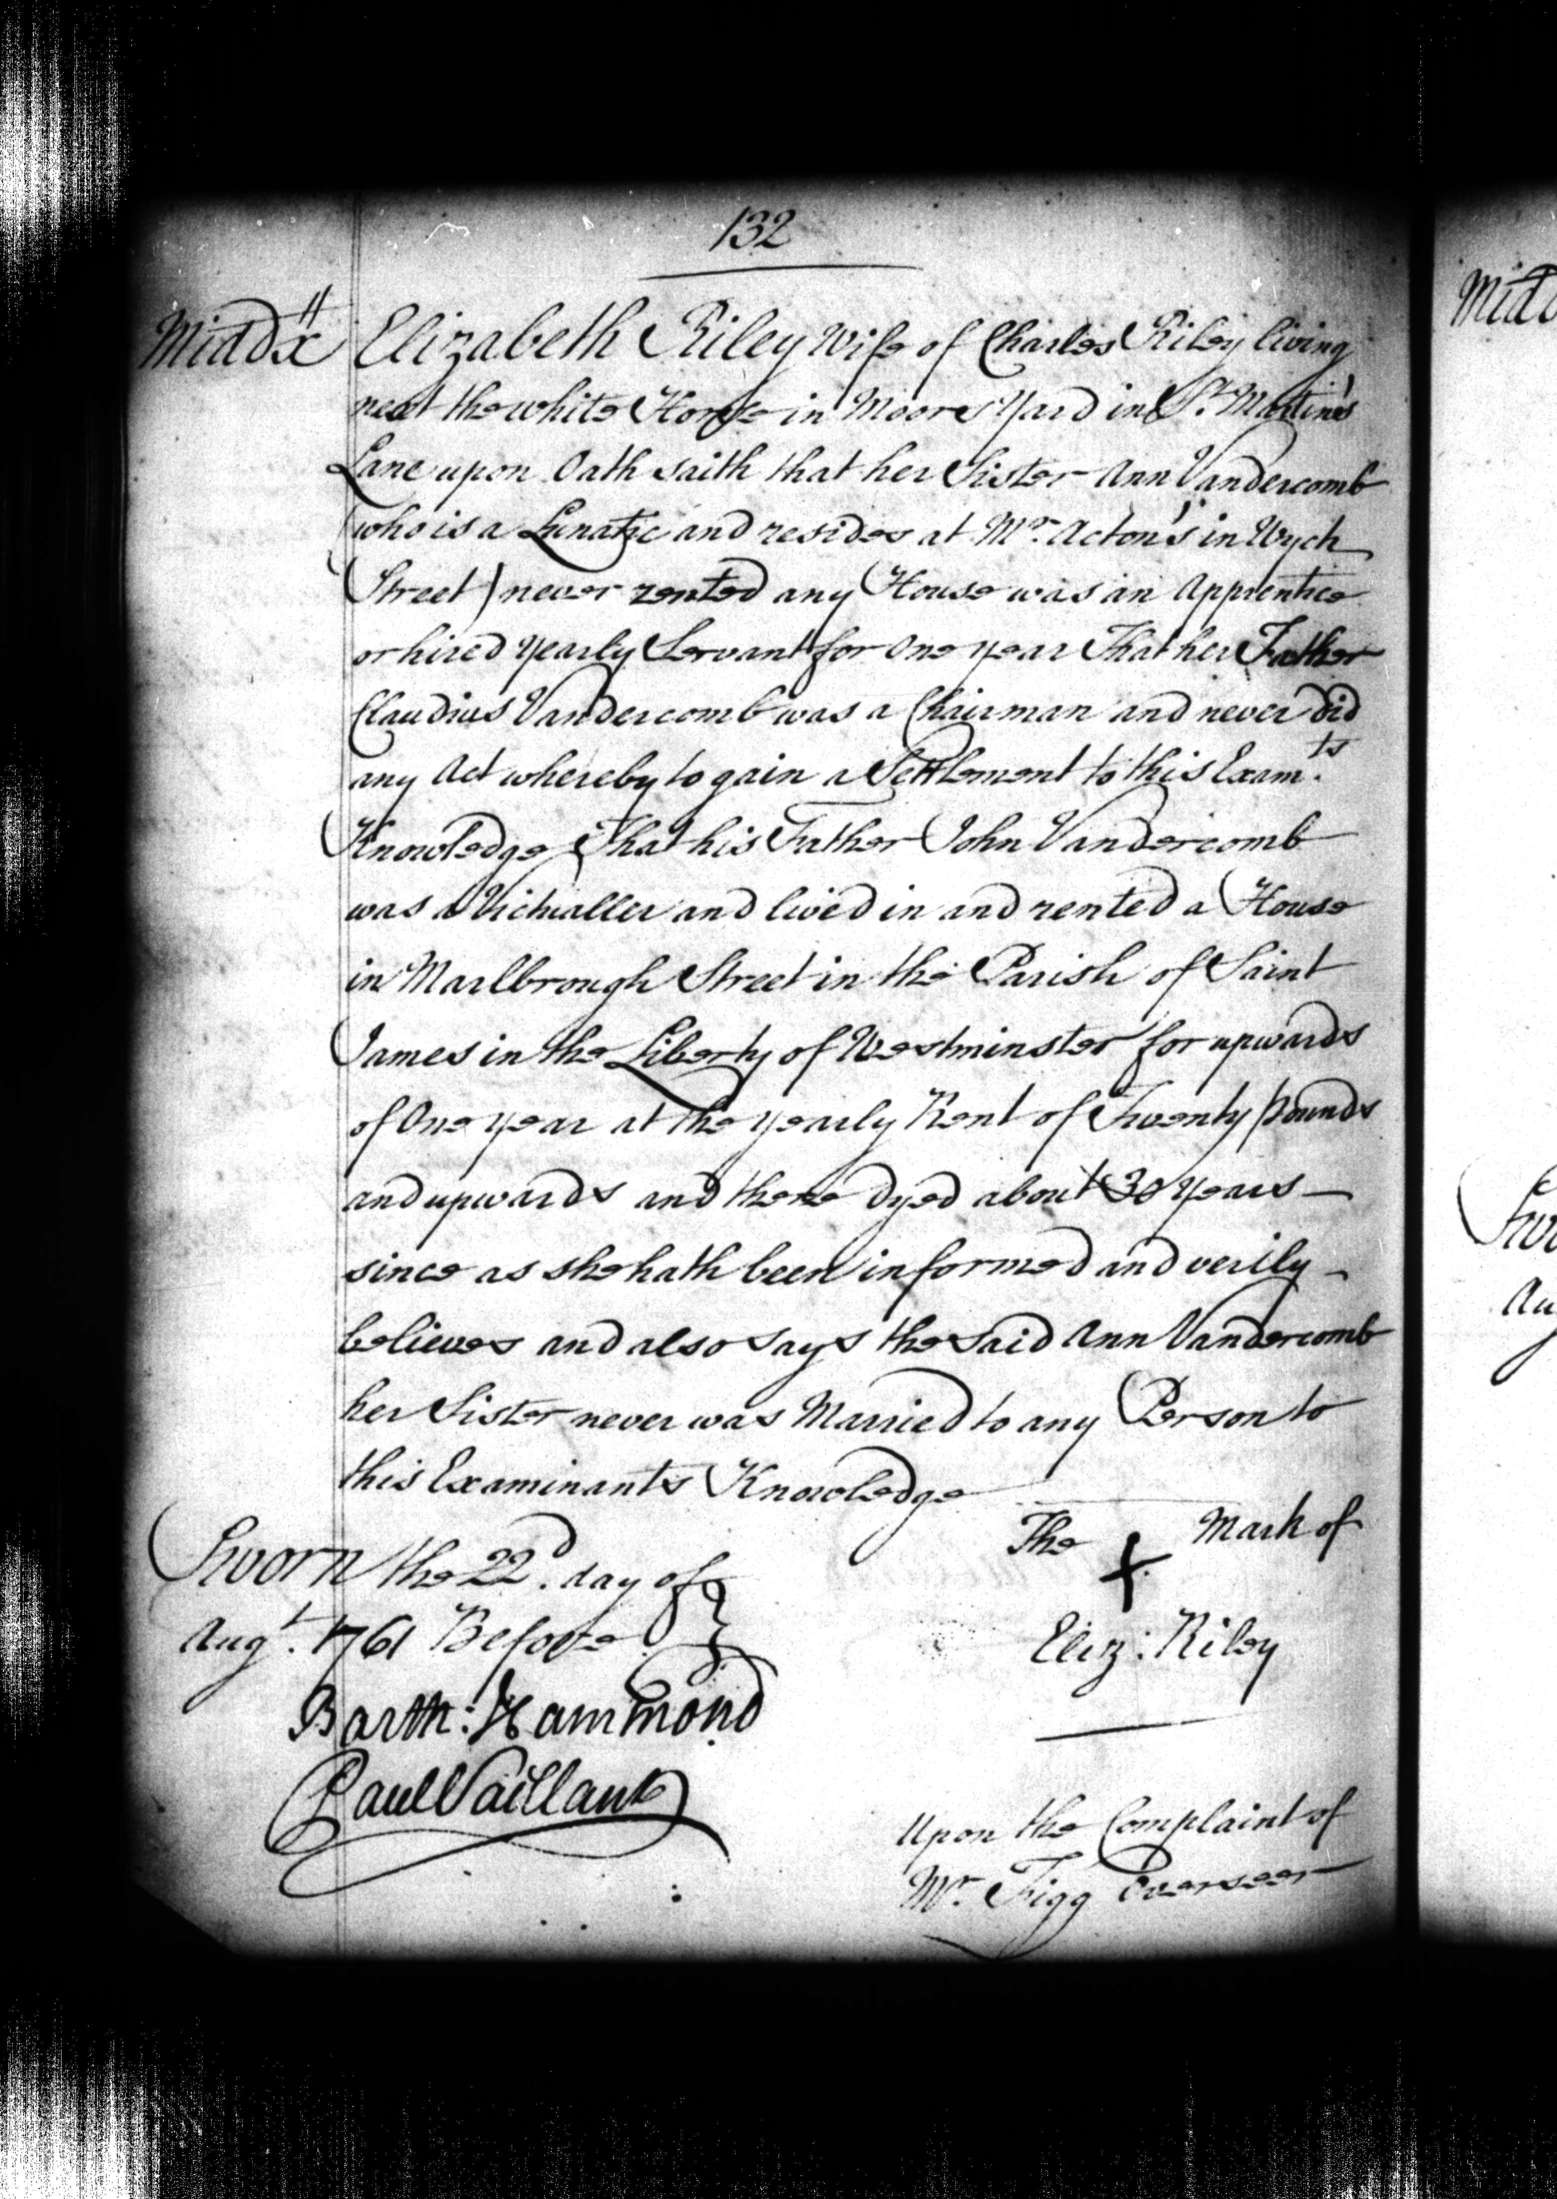 132
Middx Elizabeth Riley Wife of Charles Riley living
next the white Horse in Moors Yard in St. Martin's
Lane upon Oath saith that her Sister Ann Vandercomb
(who is a Lunatic and resides at Mr. Acton's in Wych
Street) never rented any House was an Apprentice
or hired Yearly Servant for One Year That her Father
Claudius Vandercomb was a Chairman and never did
any Act whereby to gain a Settlement to this Exam.ts
Knowledge That his Father John Vandercomb
was a Victualler and lived in and rented a House
in Marlbrough Street in the Parish of Saint
James in the Liberty of Westminster for upwards
of One Year at the Yearly Rent of Twenty pounds
and upwards and there dyed about 30 Years
since as she hath been informed and verily
believes and also says the said Ann Vandercomb
her Sister never was Married to any Person to
this Examinants Knowledge
The + Mark of
Eliz: Riley
Sworn the 22d. day of
Augt. 1761 Before
Barth: Hammond
Paul Vaillant
Upon the Complaint of
Mr. Figg Overseer
Midd
Swo
Au